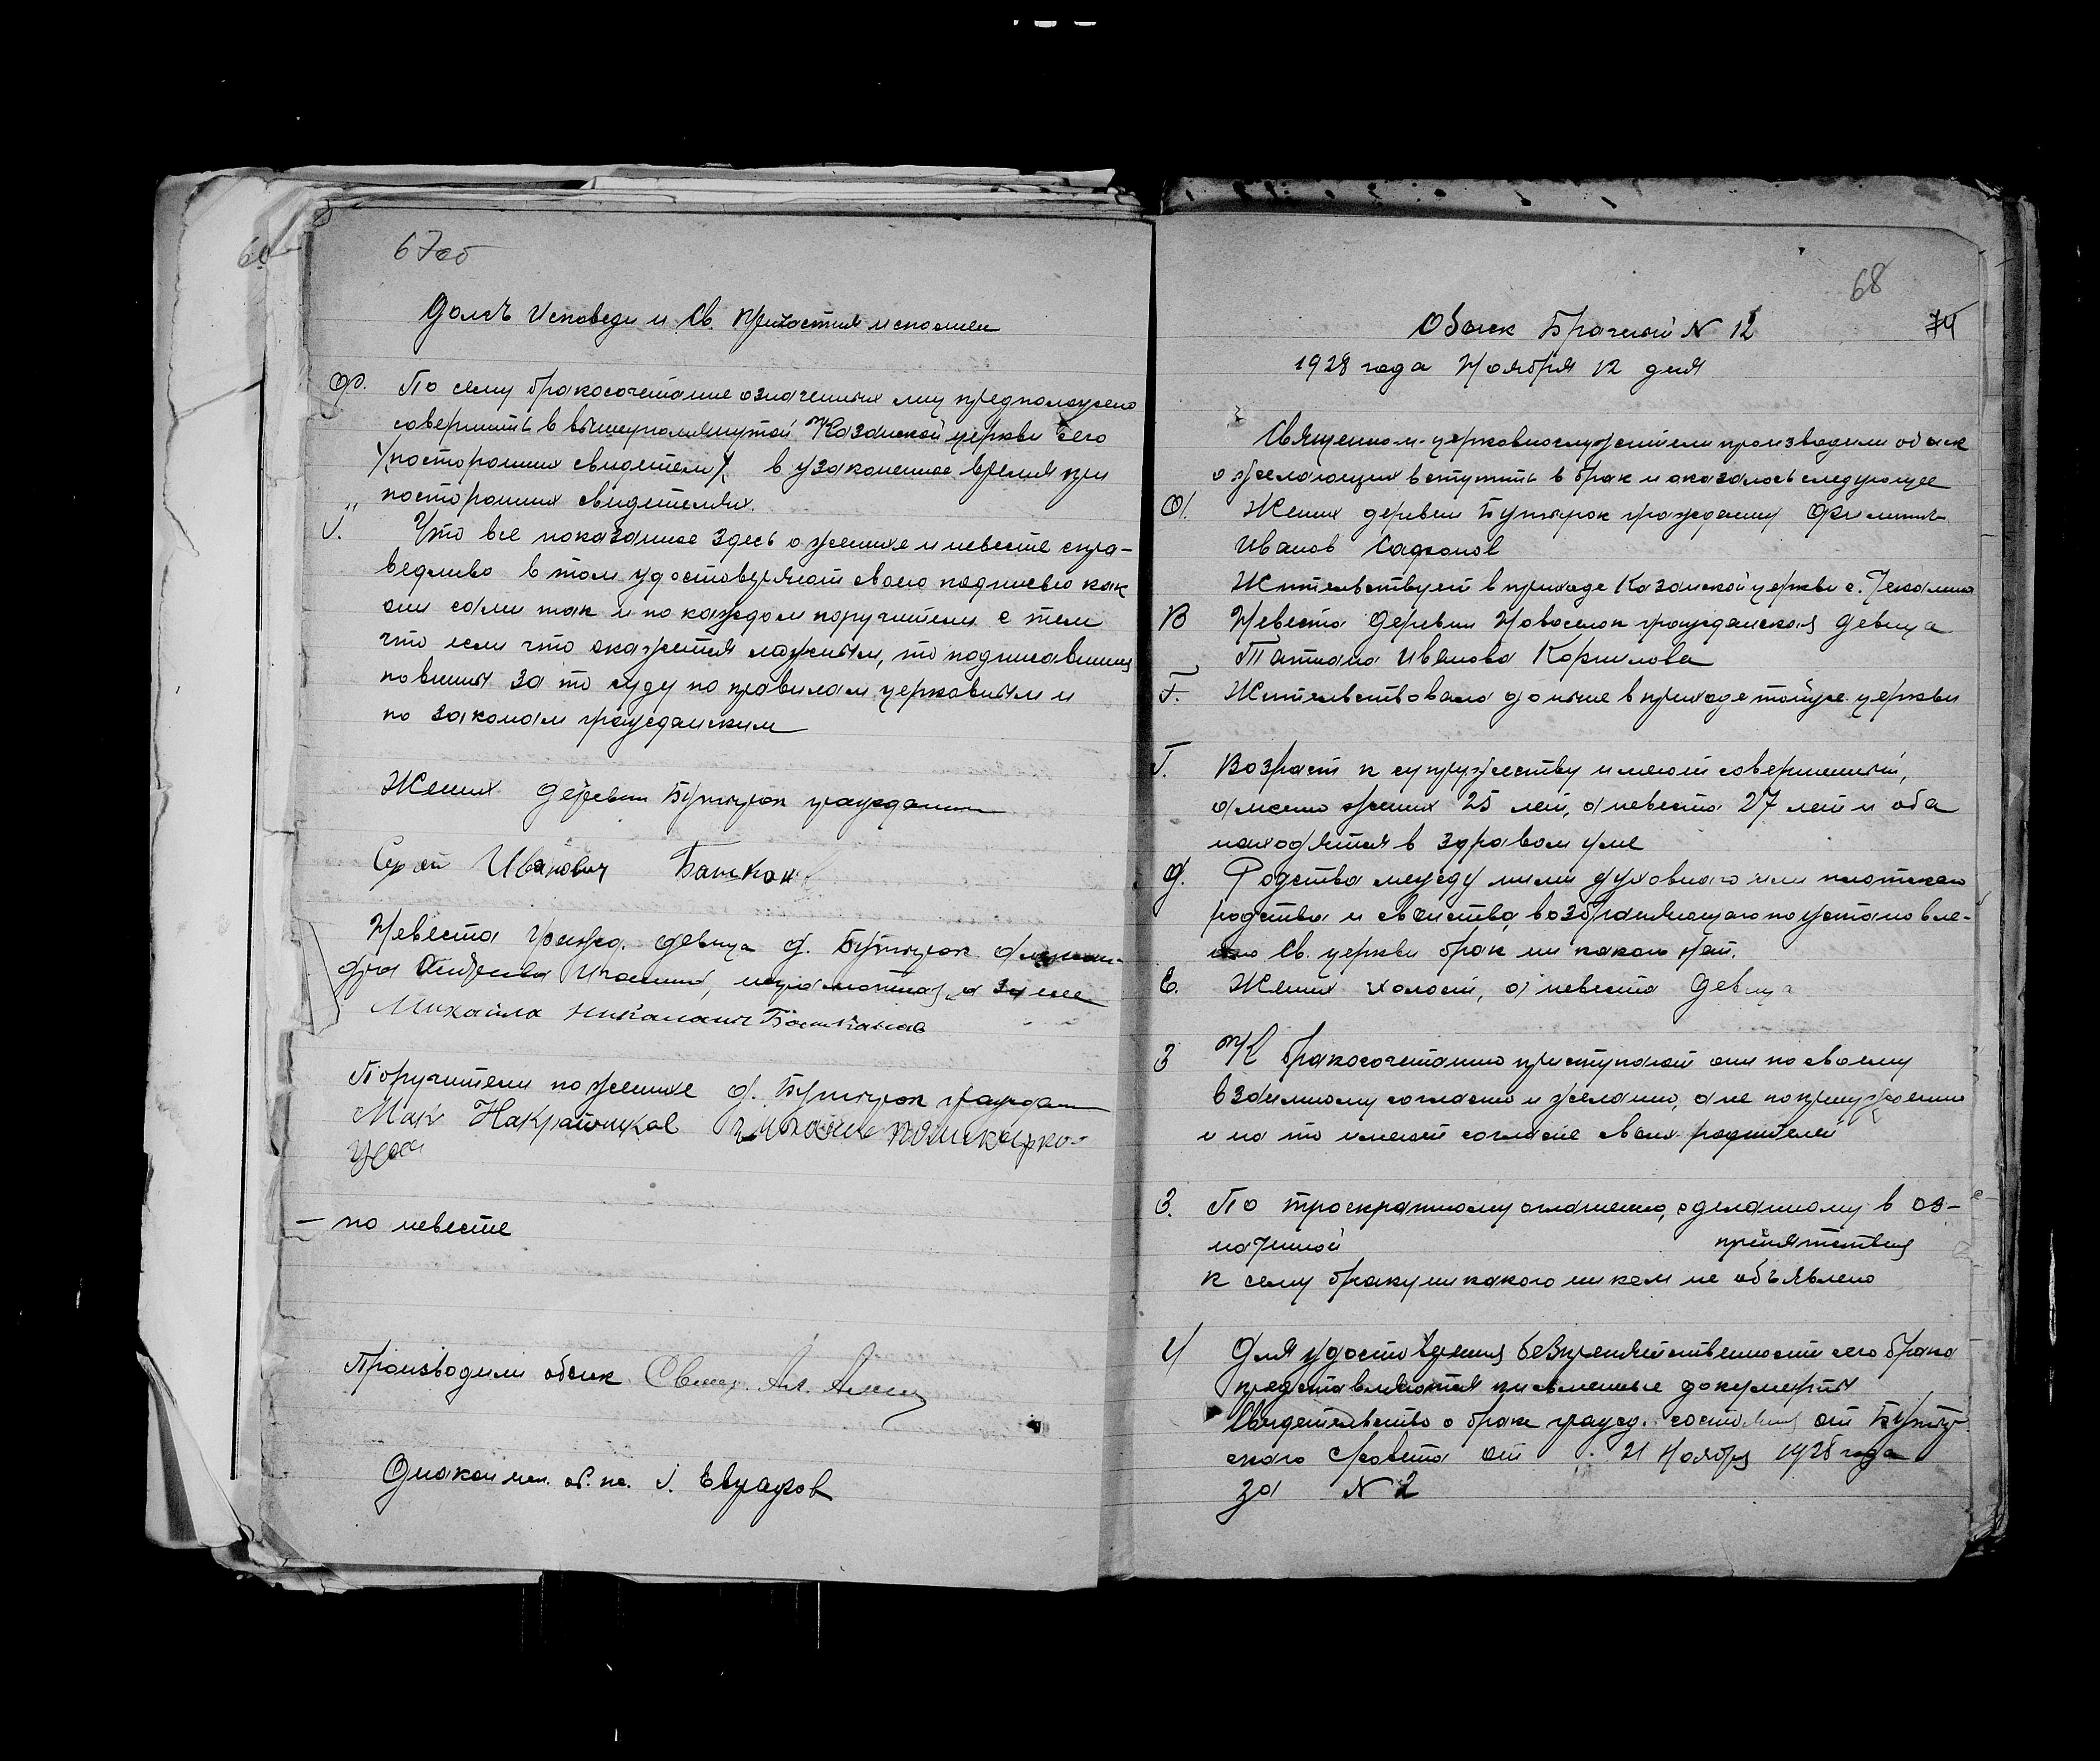 67об
Долгъ Исповеди и Св. Причастия исполнен
Ф. По сему бракосочетание означенных лиц предположено
совершить в вышеупомянутой Казанской церкви сего
посторонних свидетелях в узаконенное время при
посторонних свидетелях.
Что все показанное здесь о женихе и невесте спра-
ведливо в том удостоверяют своею подписью как
они сами так и по каждом поручители с тем
что если что окажется ложным, то подписавшиеся
повинны за то суду по правилам церковным и
по законам гражданским
Жених деревни Бутырок гражданин
Иванович
Невеста гражд. девица д. Бутырок Алексан-
дра неграмотная, а за нее
Михаила
Поручители по женихе д. Бутырок граждан
Мак
— по невесте
Производили обыск Свящ. Ал.
Диакон І. Евграфов
68
74
Обыск Брачный № 12
1928 года Ноября 12 дня
Священно и церковнослужители производили обыск
о желающих вступить в брак и оказалось следующее
А. Жених деревни Бутырок гражданин Филипп
Иванов
Жительствует в приходе Казанской церкви с.
В Невеста деревни Новоселок гражданская девица
Татиана Иванова Корнилова
Г. Жительствовала доныне в приходе той же церкви
Г. Возраст к супружеству имеют совершенный,
а именно жених 25 лет, а невеста 27 лет и оба
находятся в здравом уме
Д. Родства между ними духовного или плотского
родства и свойства, возбраняющаго по установле-
нию Св. церкви брак ни какого нет.
Е. Жених холост, а невеста девица
З К бракосочетанию приступают они по своему
взаимному согласию и желанию, а не по принуждению
и на то имеют согласие своих родителей
З. По троекратному оглашению, сделанному в оз-
наченной препятствия
к сему браку никакого никем не объявлено
И Для удостоверения безпрепятственности сего брака
представляются письменные документы
Свидетельство о браке гражд. состояния от Бутыр
скаго с/совета от 21 Ноября 1928 года
за № 2